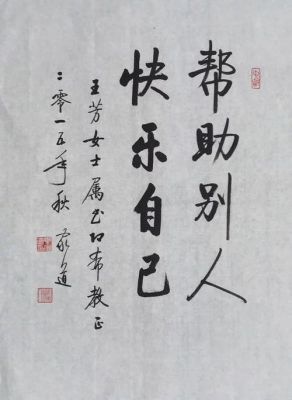 帮助别人
快乐自己
王芳女士属书即希教正
二零一五年秋
道